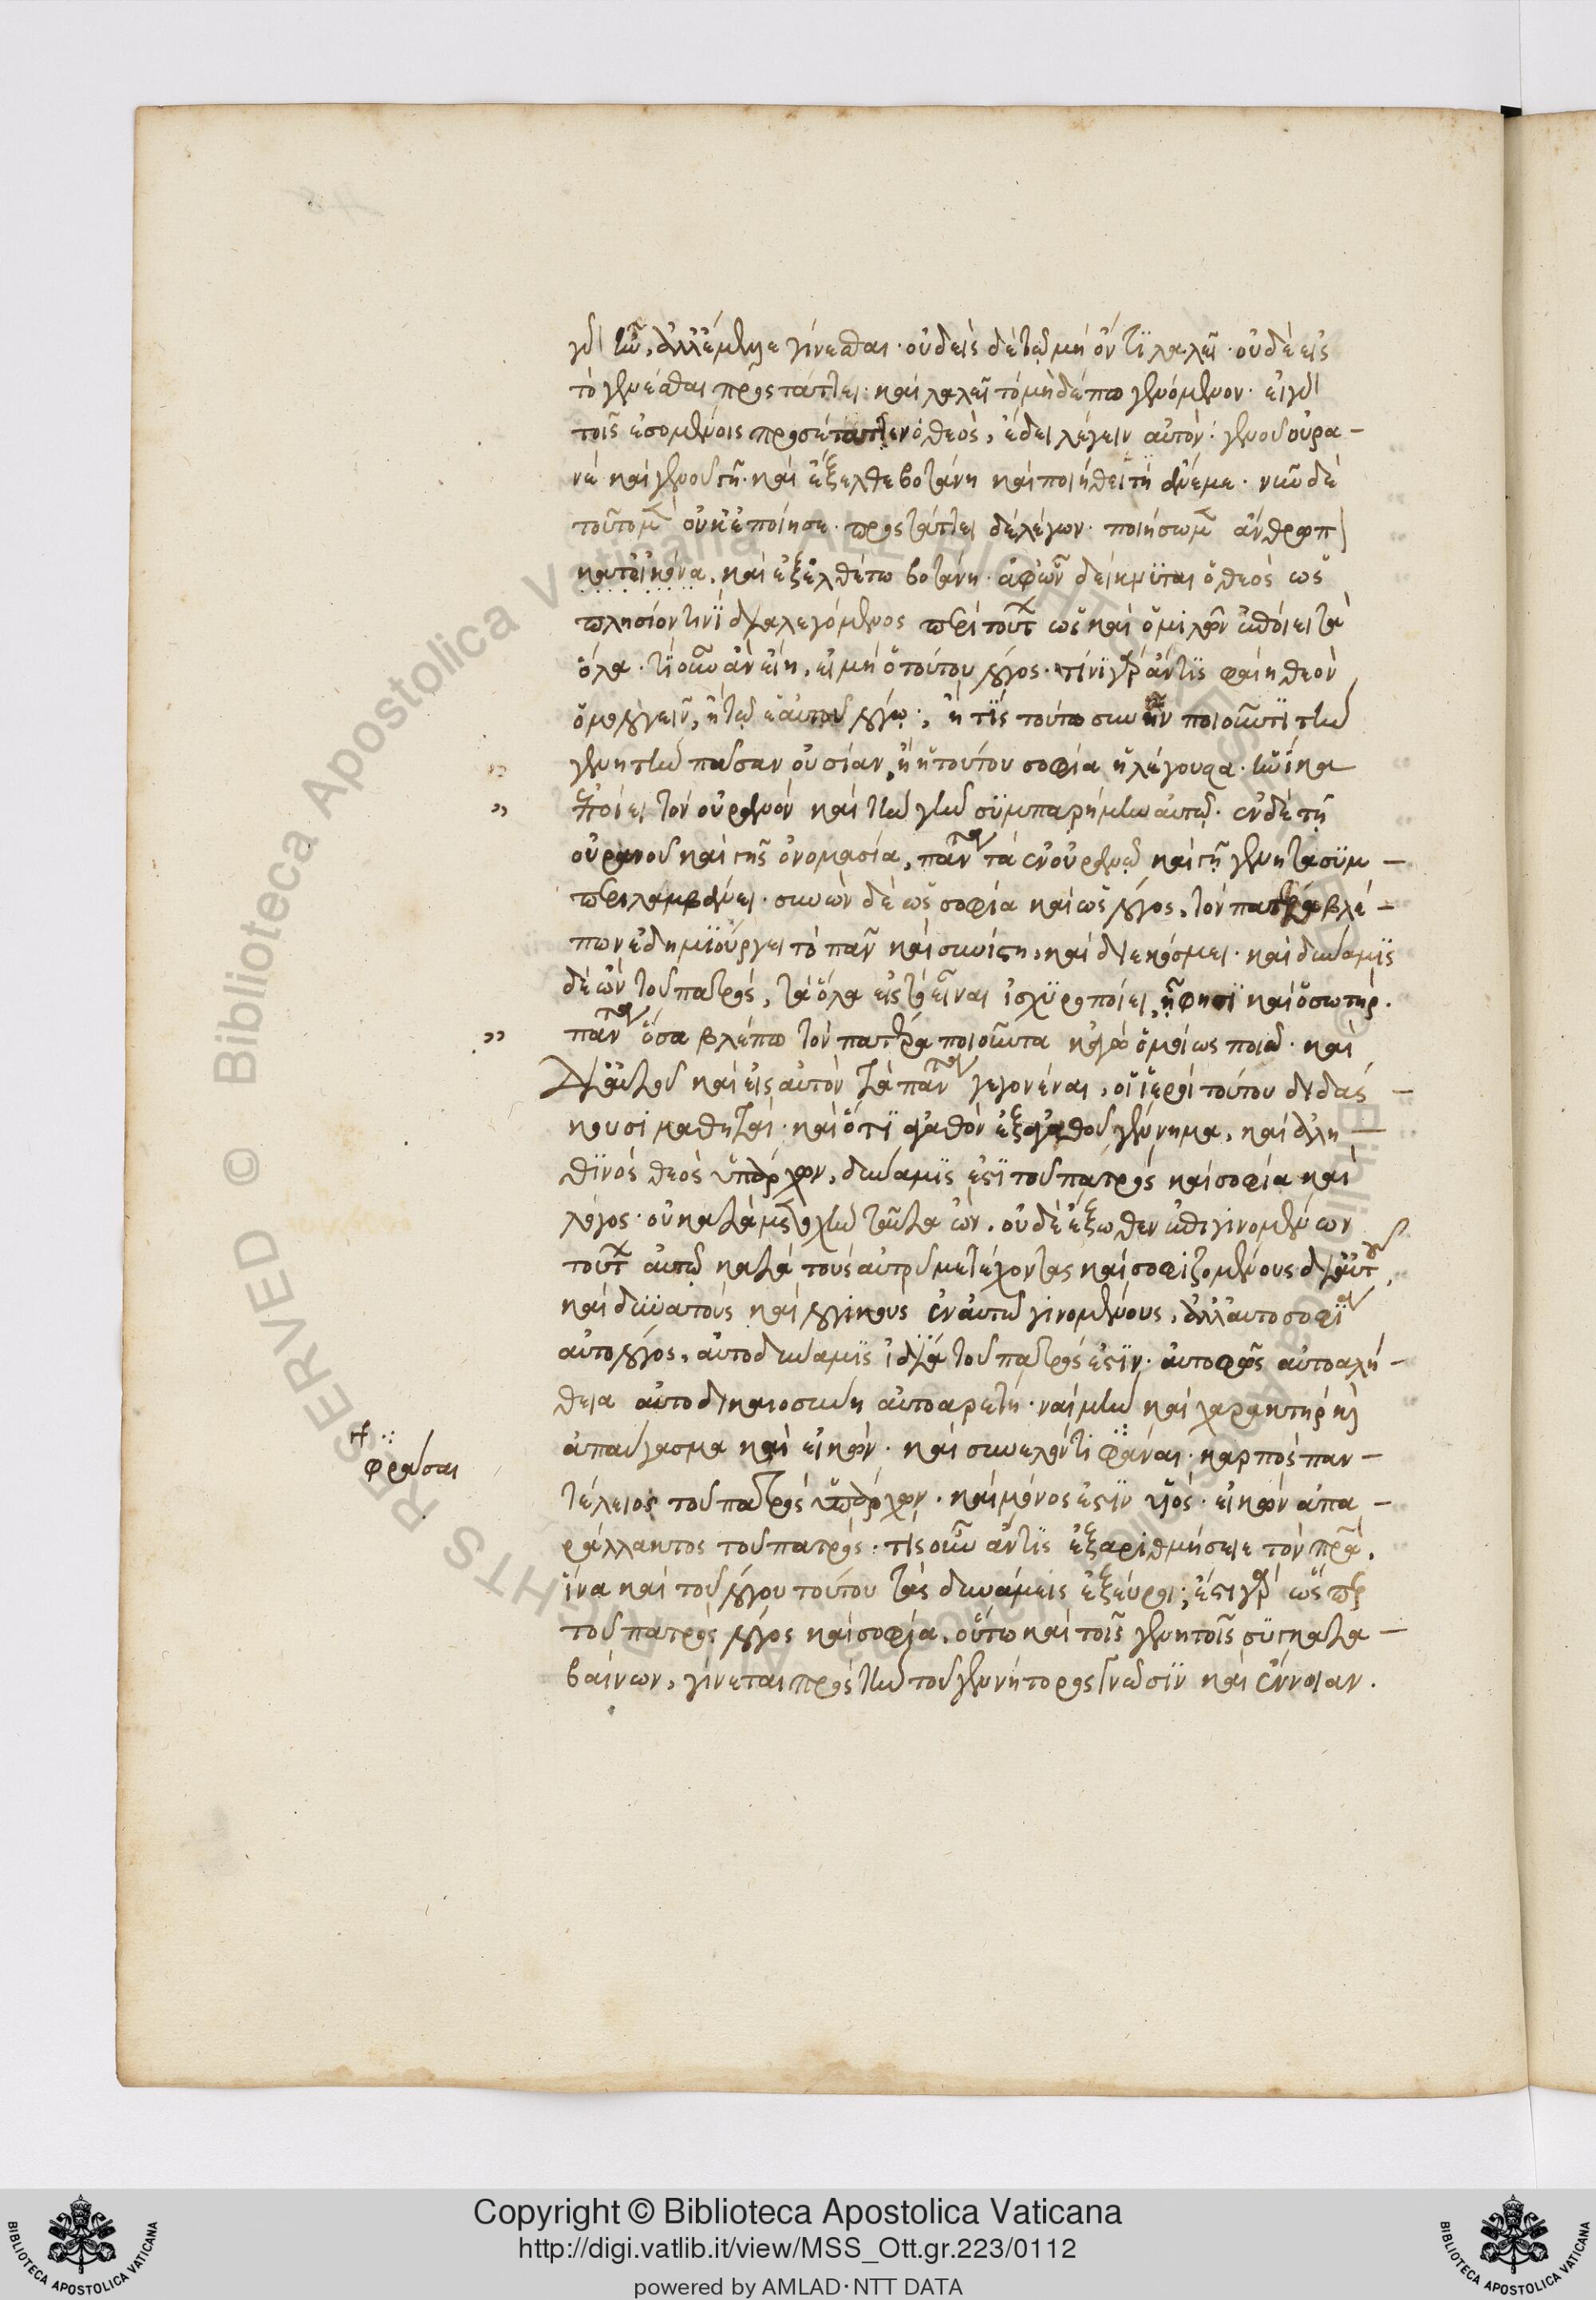 γὰρ ἦν, ἀλλ' ἔμελλε γίνεσθαι· οὐδεὶς δὲ τῷ μὴ ὄντι λαλεῖ· οὐδὲ εἰς
τὸ γενέσθαι προστάττει· καὶ λαλεῖ τὸ μηδέπω γενόμενον· εἰ γὰρ
τοῖς ἐσομένοις προσέταττεν ὁ θεὸς, ἔδει λέγειν αὐτόν· γενοῦ οὐρα-
νέ καὶ γενοῦ γῆ· καὶ ἔξελθε βοτάνη καὶ ποιήθητι ἄνεμε· νῦν δὲ
τοῦτο μὲν οὐκ ἐποίησε· προστάττει δὲ λέγων· ποιήσωμεν ἄνθρωπ
κατ' εἰκόνα, καὶ ἐξελθέτω βοτάνη· ἀφ' ὧν δείκνυται ὁ θεὸς ὡς
πλησίον τινὶ διαλεγόμενος περὶ τούτων ὡς καὶ ὁμιλῶν ἐποίει τὰ
ὅλα· τί οὖν ἂν εἴη, εἰ μὴ ὁ τούτου λόγος· τίνι γὰρ ἄν τις φαίη θεὸν
ὁμολογεῖν, ἢ τῷ ἑαυτοῦ λόγῳ; ἢ τίς τούτω συνῆν ποιοῦντι τὴν
γενητὴν πᾶσαν οὐσίαν, ἢ ἡ τούτου σοφία ἡ λέγουσα· ἡνίκα
ἐποίει τὸν οὐρανὸν καὶ τὴν γῆν συμπαρήμην αὐτῷ· ἐν δὲ τῇ
οὐρανοῦ καὶ γῆς ὀνομασία, πάντα τὰ ἐν οὐρανῷ καὶ γῇ γενητὰ συμ-
περιλαμβάνει· συνὼν δὲ ὡς σοφία καὶ ὡς λόγος, τὸν πατέρα βλέ-
πων ἐδημιούργει τὸ πᾶν καὶ συνίστη, καὶ διεκόσμει· καὶ δύναμις
δὲ ὢν τοῦ πατρὸς, τὰ ὅλα εἰς τὸ εἶναι ἰσχυροποίει, ᾗ φησι καὶ ὁ σωτήρ·
πάντα ὅσα βλέπω τὸν πατέρα ποιοῦντα κἀγὼ ὁμοίως ποιῶ· καὶ
δι' αὐτοῦ καὶ εἰς αὐτὸν τὰ πάντα γεγονέναι, οἱ ἱεροὶ τούτου διδάς-
κουσι μαθηταί· καὶ ὅτι ἀγαθὸν ἐξ ἀγαθοῦ γέννημα, καὶ ἀλη-
θινὸς θεὸς ὑπάρχων, δύναμις ἐστὶ τοῦ πατρὸς καὶ σοφία καὶ
λόγος· οὐ κατὰ μετοχὴν ταῦτα ὤν. οὐδὲ ἔξωθεν ἐπιγινομένων
τούτων αὐτῷ κατὰ τοὺς αὐτοῦ μετέχοντας καὶ σοφιζομένους δι' αὐτοῦ,
καὶ δυνατοὺς καὶ λογικοὺς ἐν αὐτῷ γινομένους, ἀλλ' αὐτοσοφία
αὐτολόγος, αὐτοδύναμις ἰδία τοῦ πατρός ἐστιν· αὐτοφῶς αὐτοαλή-
θεια αὐτοδικαιοσύνη αὐτοαρετή· ναὶ μὴν καὶ χαρακτὴρ καὶ
ἀπαύγασμα καὶ εἰκών· καὶ συνελόντι φάναι· καρπὸς παν-
τέλειος τοῦ πατρὸς ὑπάρχων· καὶ μόνος ἐστὶν υἱός· εἰκὼν ἀπα-
ράλλακτος τοῦ πατρός· τίς οὖν ἄν τις ἐξαριθμήσειε τὸν πρα,
ἵνα καὶ τοῦ λόγου τούτου τὰς δυνάμεις ἐξεύροι; ἔστι γὰρ ὥσπερ
τοῦ πατρὸς λόγος καὶ σοφία, οὕτω καὶ τοῖς γενητοῖς συγκατα-
βαίνων, γίνεται πρὸς τὴν τοῦ γεννήτορος γνῶσιν καὶ ἔννοιαν.
φράσαι
Copyright © Biblioteca Apostolica Vaticana
http://digi.vatlib.it/view/MSS_Ott.gr.223/0112
powered by AMLAD·NTT DATA
BIBLIOTECA APOSTOLICA VATICANA
BIBLIOTECA APOSTOLICA VATICANA